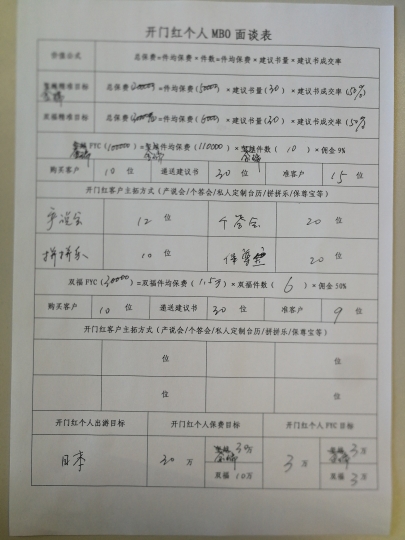 开门红个人 MBO 面谈表
价值公式 总保费=件均保费*件数=件均保费*建议书量*建议书成交率
金瑞精准目标 总保费( )=件均保费(5000)*建议书量(30)*建议书成交率(50%)
双福精准目标 总保费( )=件均保费(6000)*建议书量(30)*建议书成交率(50%)
FYC(100000)=件均保费(110000)*件数(10)*佣金 9%
购买客户 10 位 递送建议书 30 位 准客户 15 位
开门红客户主拓方式(产说会/个答会/私人定制台历/拼拼乐/保尊宝等)
产说会 12 位 个答会 20 位
拼拼乐 10 位 保尊宝 20 位
双福 FYC(30000)=双福件均保费(1.5万)*双福件数(6)*佣金 50%
购买客户 10 位 递送建议书 30 位 准客户 9 位
开门红客户主拓方式(产说会/个答会/私人定制台历/拼拼乐/保尊宝等)
位 位
位 位
开门红个人出游目标 开门红个人保费目标 开门红个人 FYC 目标
日本 30 万 30万 3 万 3万
双福 10万 双福 3万